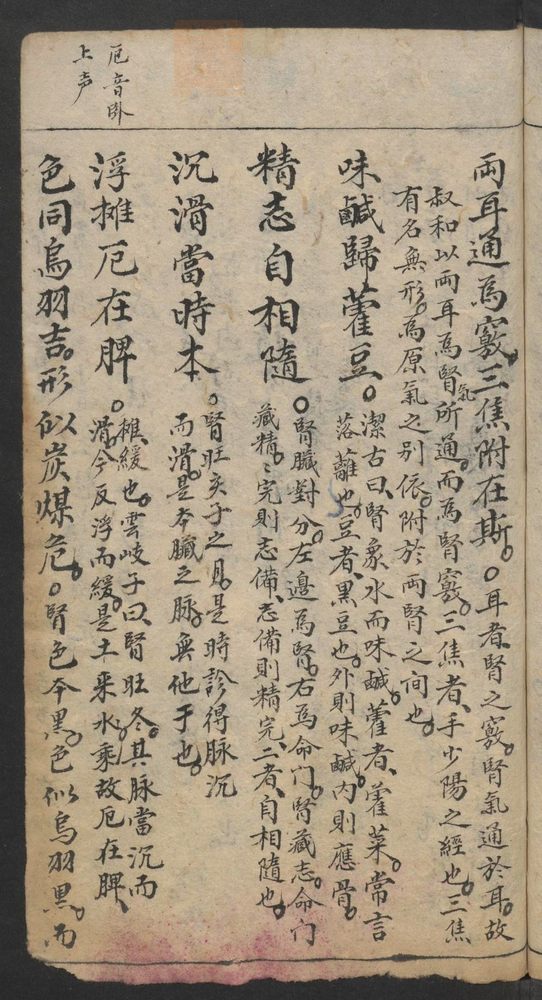 厄音卧
上声
兩耳通爲竅三焦附在斯。○耳者腎之竅。腎氣通於耳。故
叔和以兩耳爲腎氣所通。而爲腎竅。三焦者、手少陽之經也。三焦
有名無形。爲原氣之别依。附於兩腎之间也。
味鹹歸藿豆。○潔古曰、腎象水而味鹹。藿者、藿菜。常言
落蘺也。豆者、黑豆也。外則味鹹、内則應骨。
精志自相隨○腎臟對分。左邊爲腎。右爲命门。腎藏志。命门
藏精。〻完則志備、志備則精完、二者、自相隨也。
沉滑當時本。○腎旺亥子之月。是時診得脉沉
而滑。是本臟之脉。無他于也。
浮摊厄在脾○摊緩也。雲岐子曰、腎旺冬。其脉當沉而
滑。今反浮而緩。是土来水乘。故厄在脾、
色同烏羽吉。形似炭煤危。○腎色本黑。色似烏羽黑。而